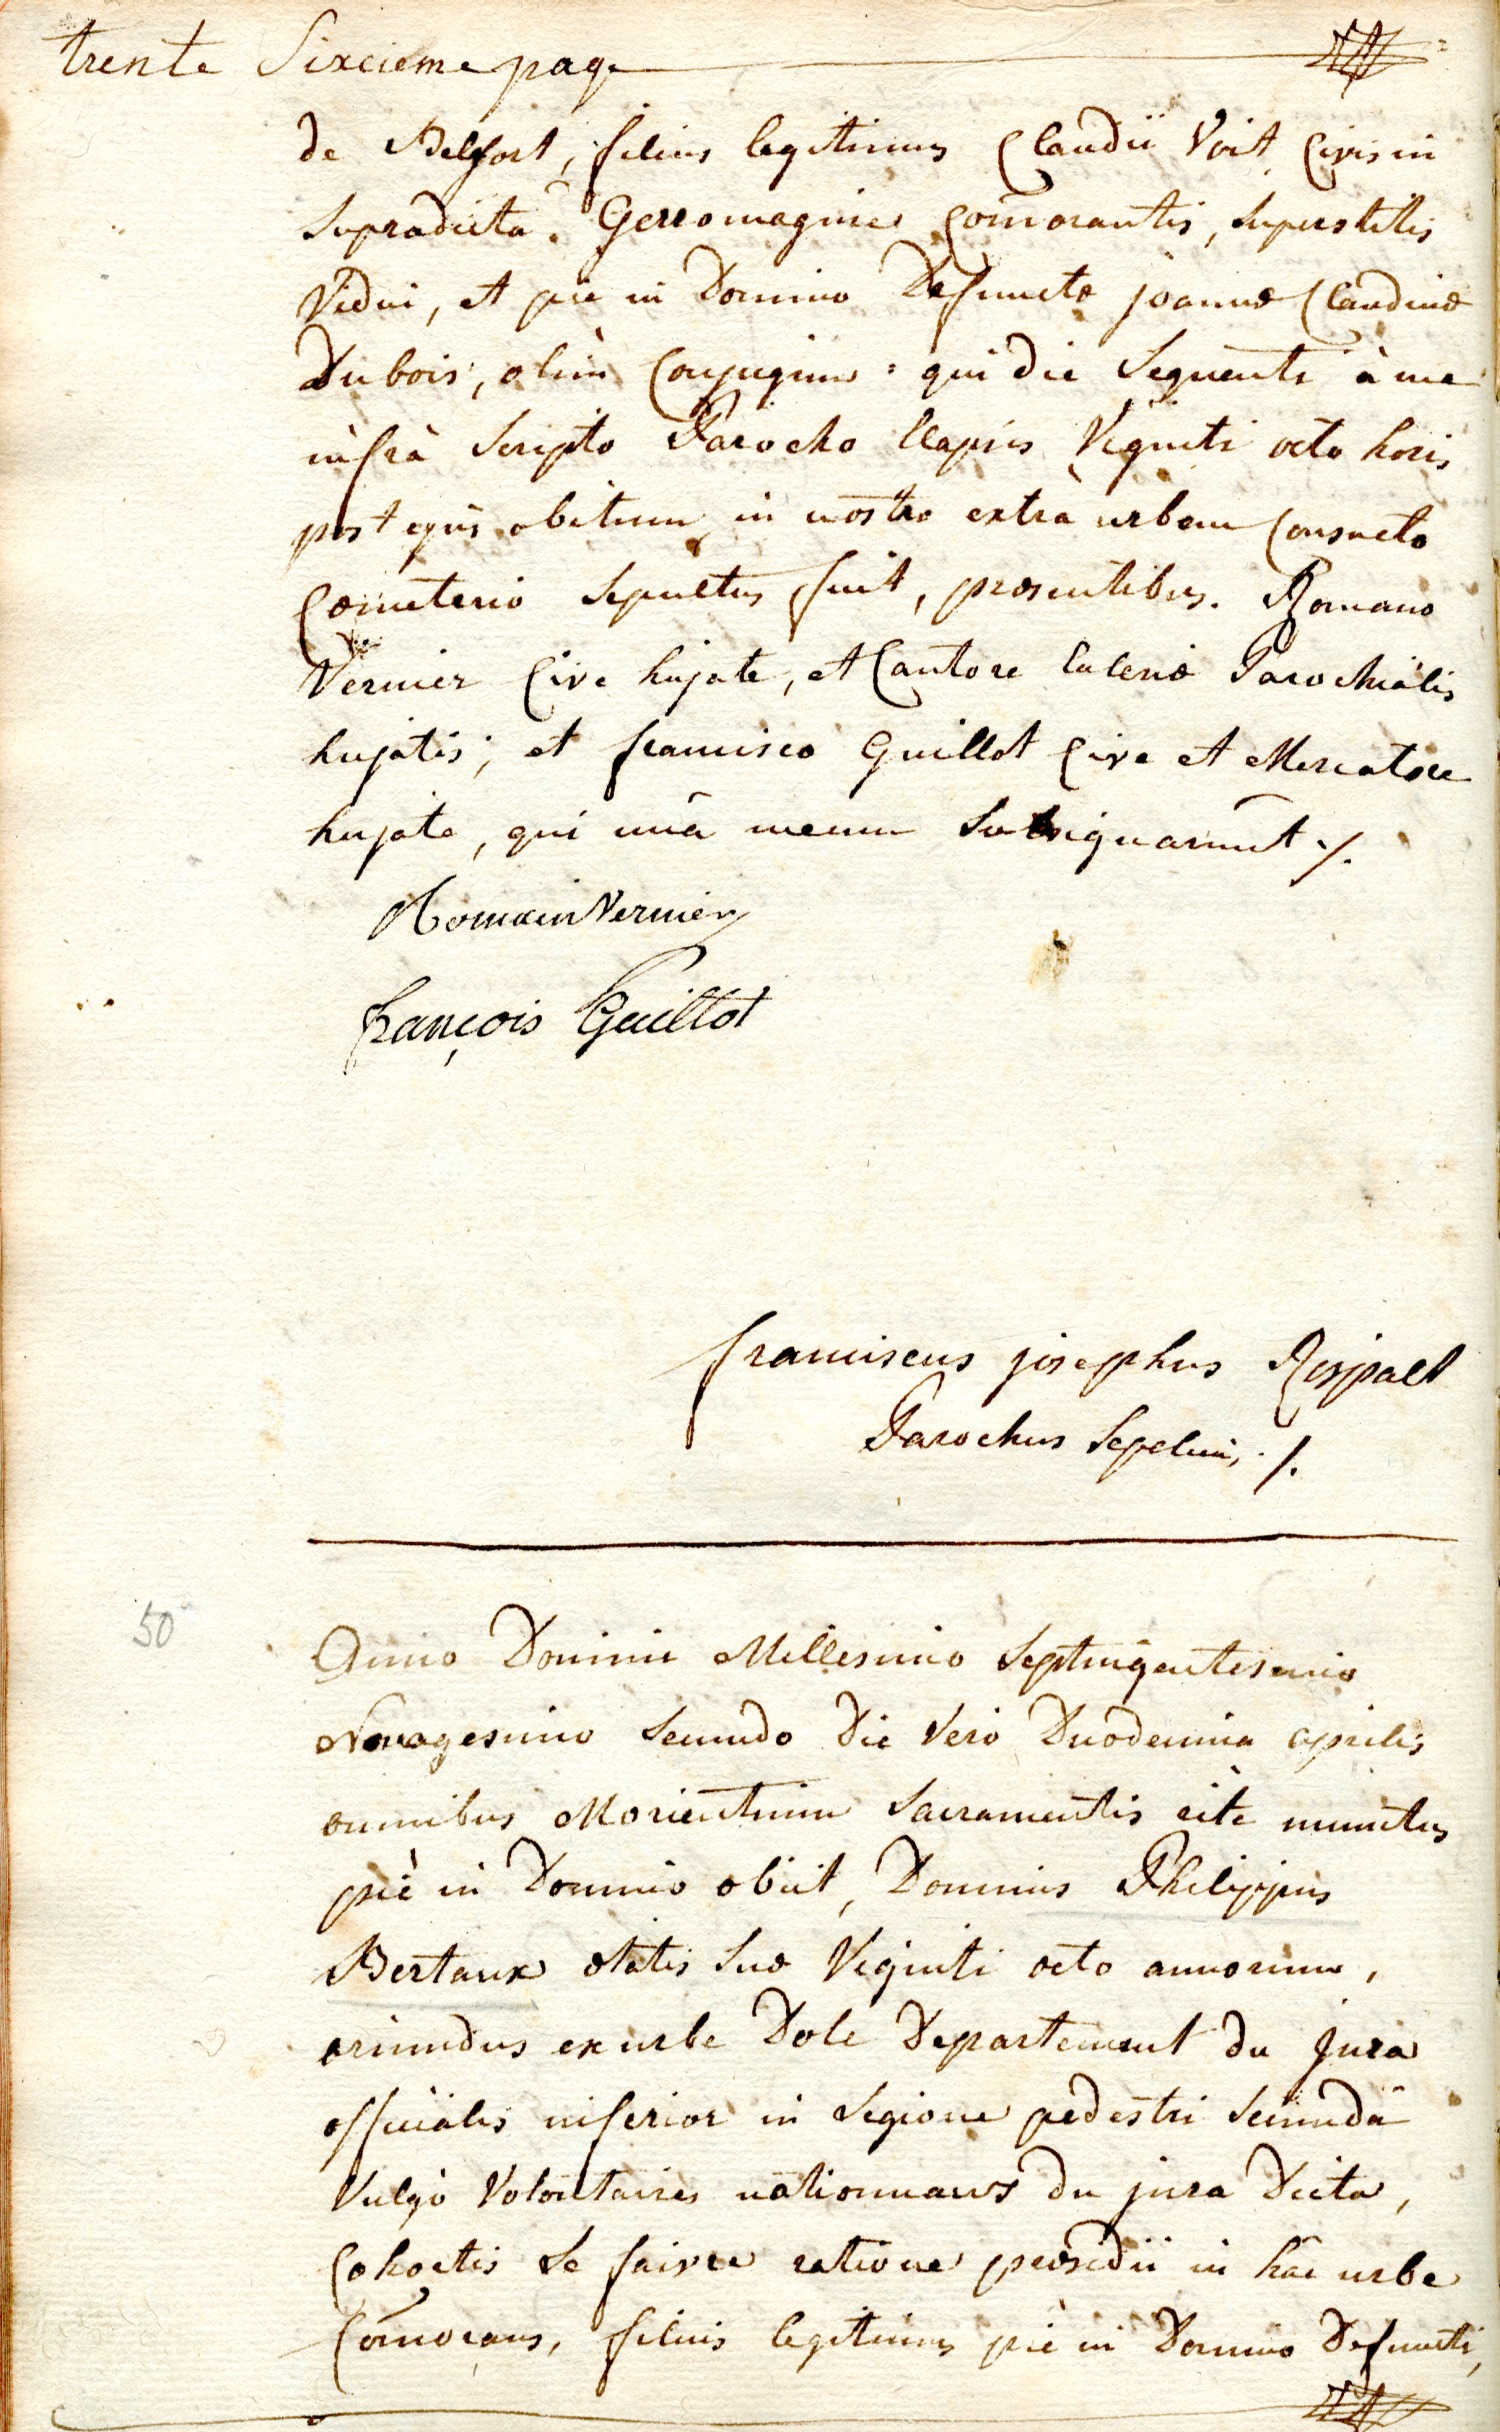 trente Sixcieme page
de Belfort, filius legitimus Claudii Voit Civis in
supradicta Gerromagnie Com̄orantis, superstitis
Vidui, et pie in Domino Defunctæ joannæ Claudinæ
Dubois, olim Conjugum : qui die Sequenti à me
infrà Scripto Parocho Elapsis Viginti octo horis
post ejus obitum in nostro extrà urbem Consueto
Cœmeterio Sepultus fuit, præsentibus. Romano
Vernier Cive hujate, et Cantore Eclesiæ Parochialis
hujatis; et francisco Guillot Cive et Mercatore
hujate, qui unâ mecum Subsignarunt ./.
Romain Vernier
françois Guillot
franciscus josephus Rispalt
Parochus Sepelivi, ./.
50
Anno Domini Millesimo Septingentesimo
Nonagesimo Secundo Die Vero Duodecima aprilis
omnibus Morientium Sacramentis ritè munitus
piè in Domino obiit, Dominus Philippus
Bertaux ætatis Suæ Viginti octo annorum,
oriundus ex urbe Dole Departement du Jura
officialis inferior in Legione pedestri Secundâ
Vulgò Volontaires nationnaux du jura Dicta,
Cohortis Le faivre ratione præsidii in hâc urbe
Com̄orans, filius legitimus piè in Domino Defuncti,